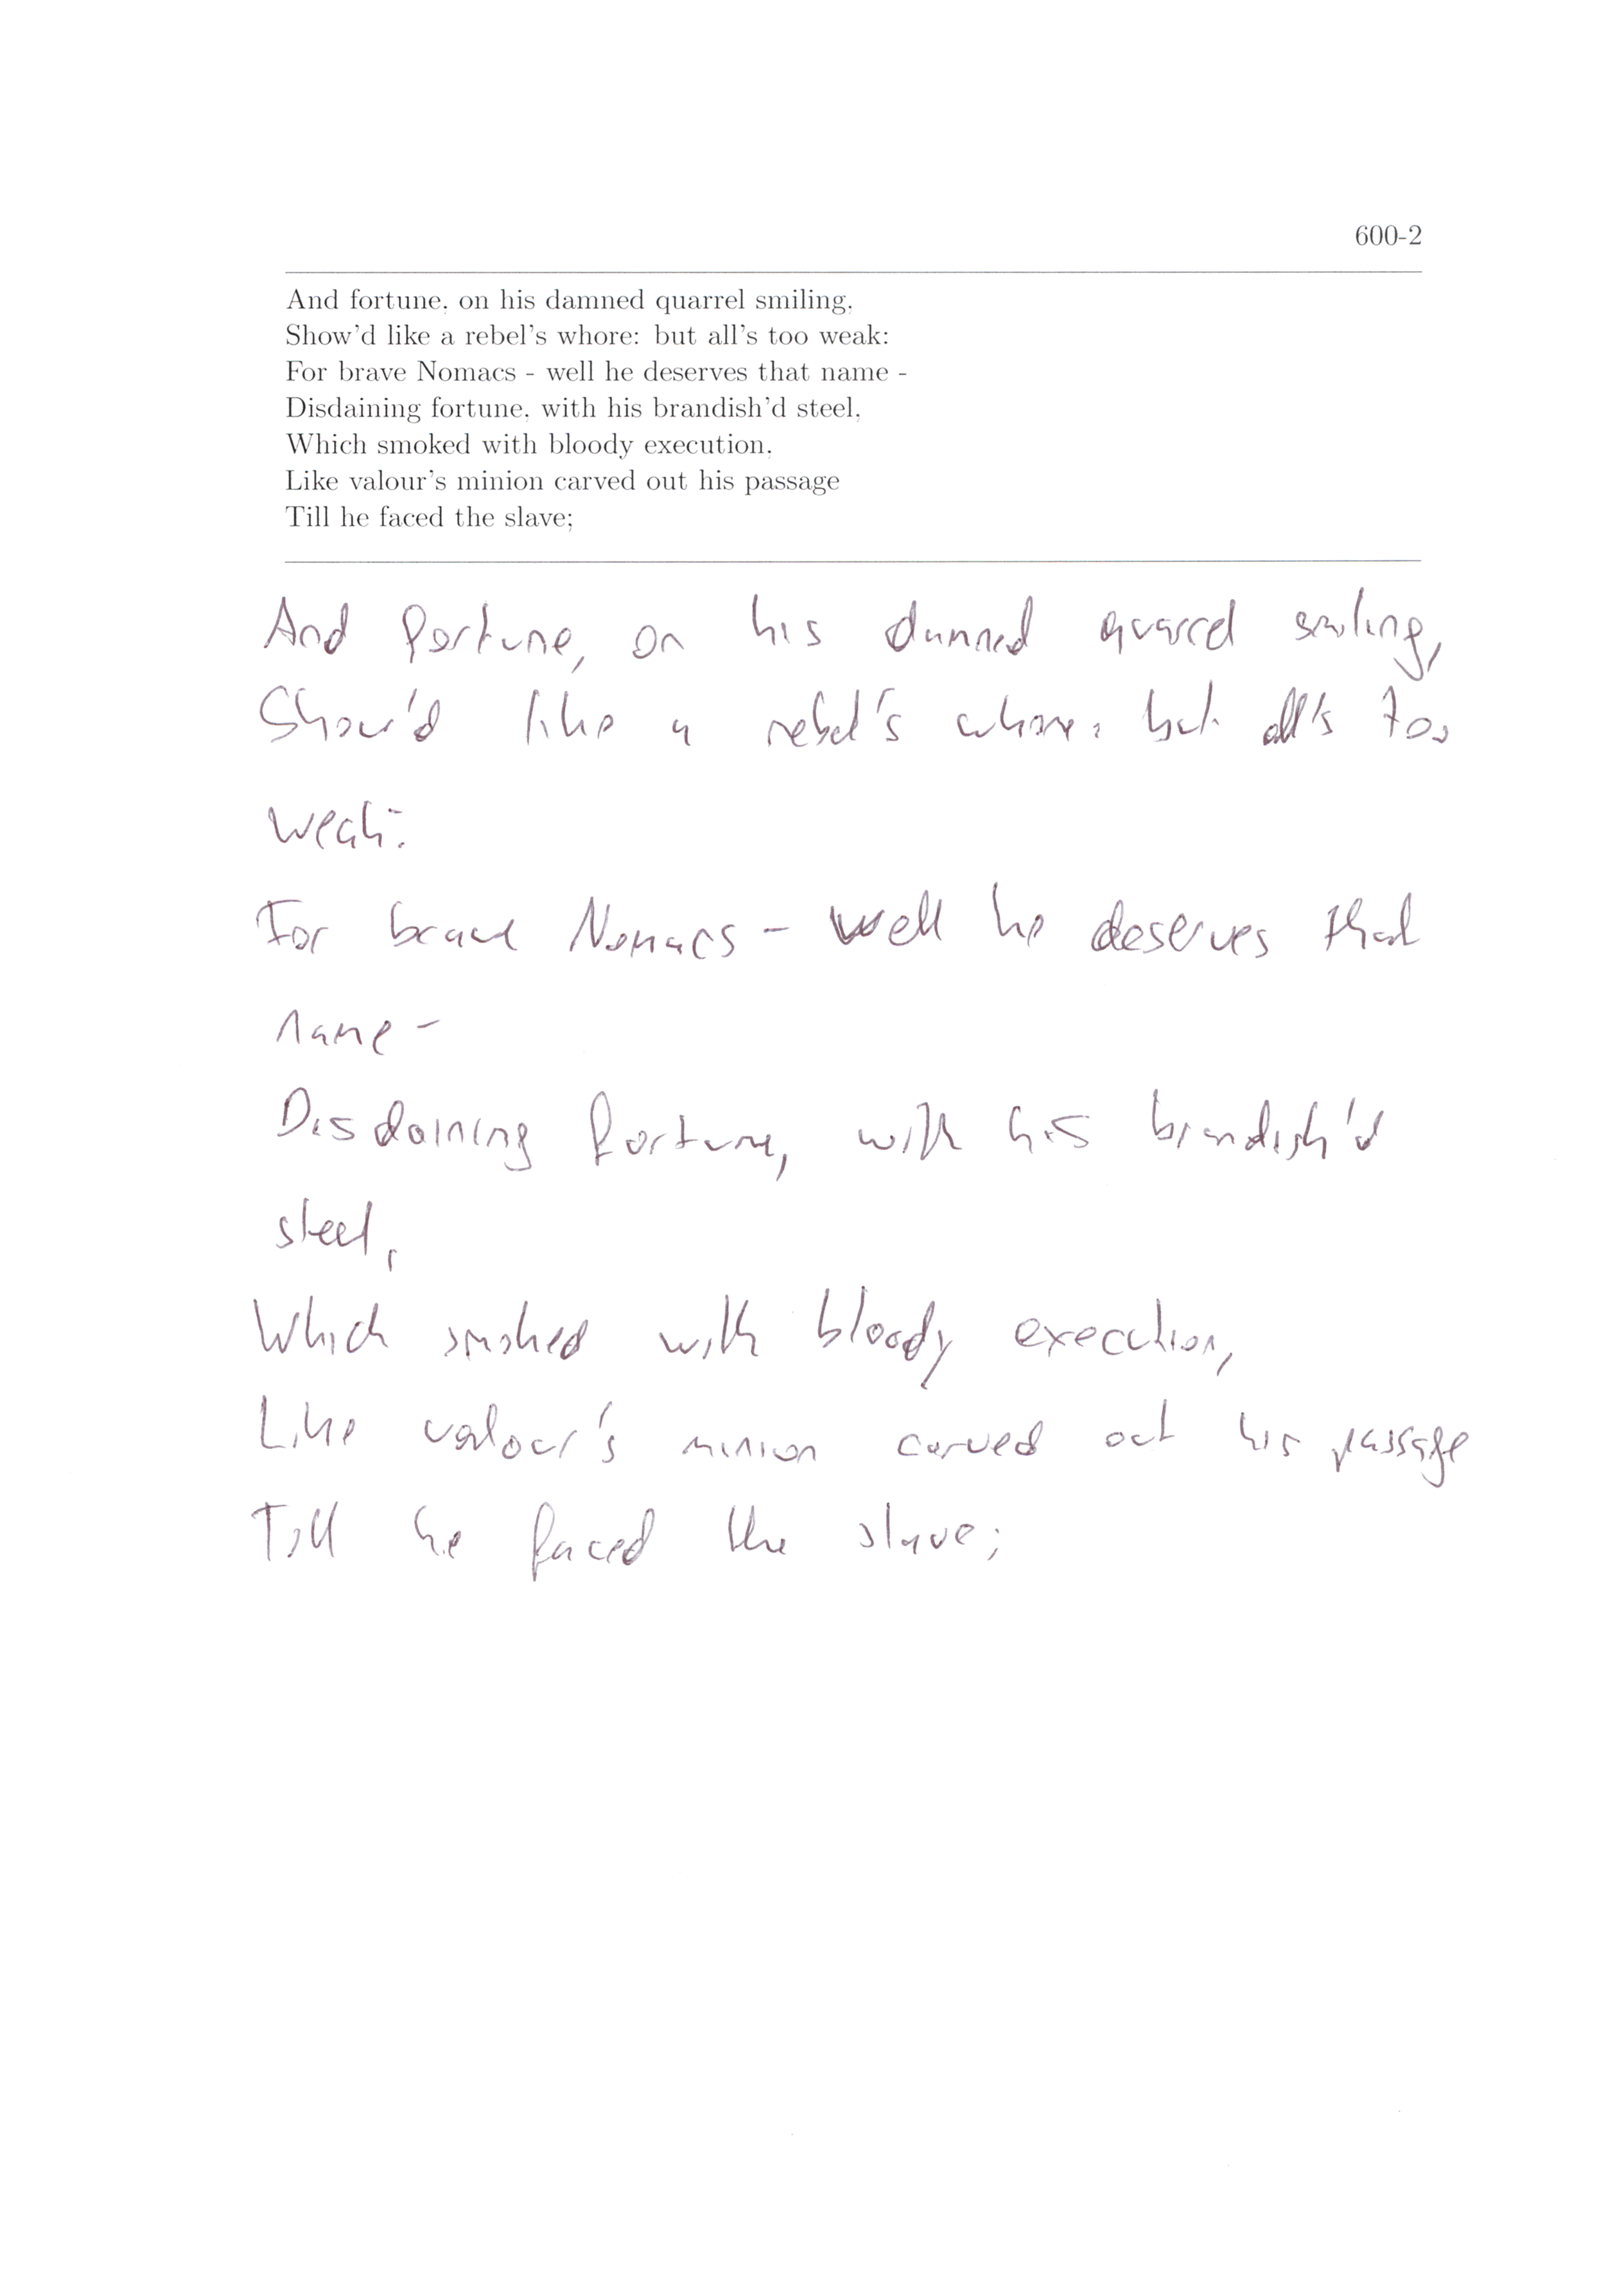 600-2
And fortune, on his damned quarrel smiling,
Show'd like a rebel's whore: but all's too weak:
For brave Nomacs - well he deserves that name -
Disdaining fortune, with his brandish'd steel,
Which smoked with bloody execution,
Like valour's minion carved out his passage
Till he faced the slave;
And fortune, on his damned quarrel smiling,
Show'd like a rebel's whore: but all's too
weak:
For brave Nomacs - well he deserves that
name -
Disdaining fortune, with his brandish'd
steel,
Which smoked with bloody execution,
Like valour's minion carved out his passage
Till he faced the slave;